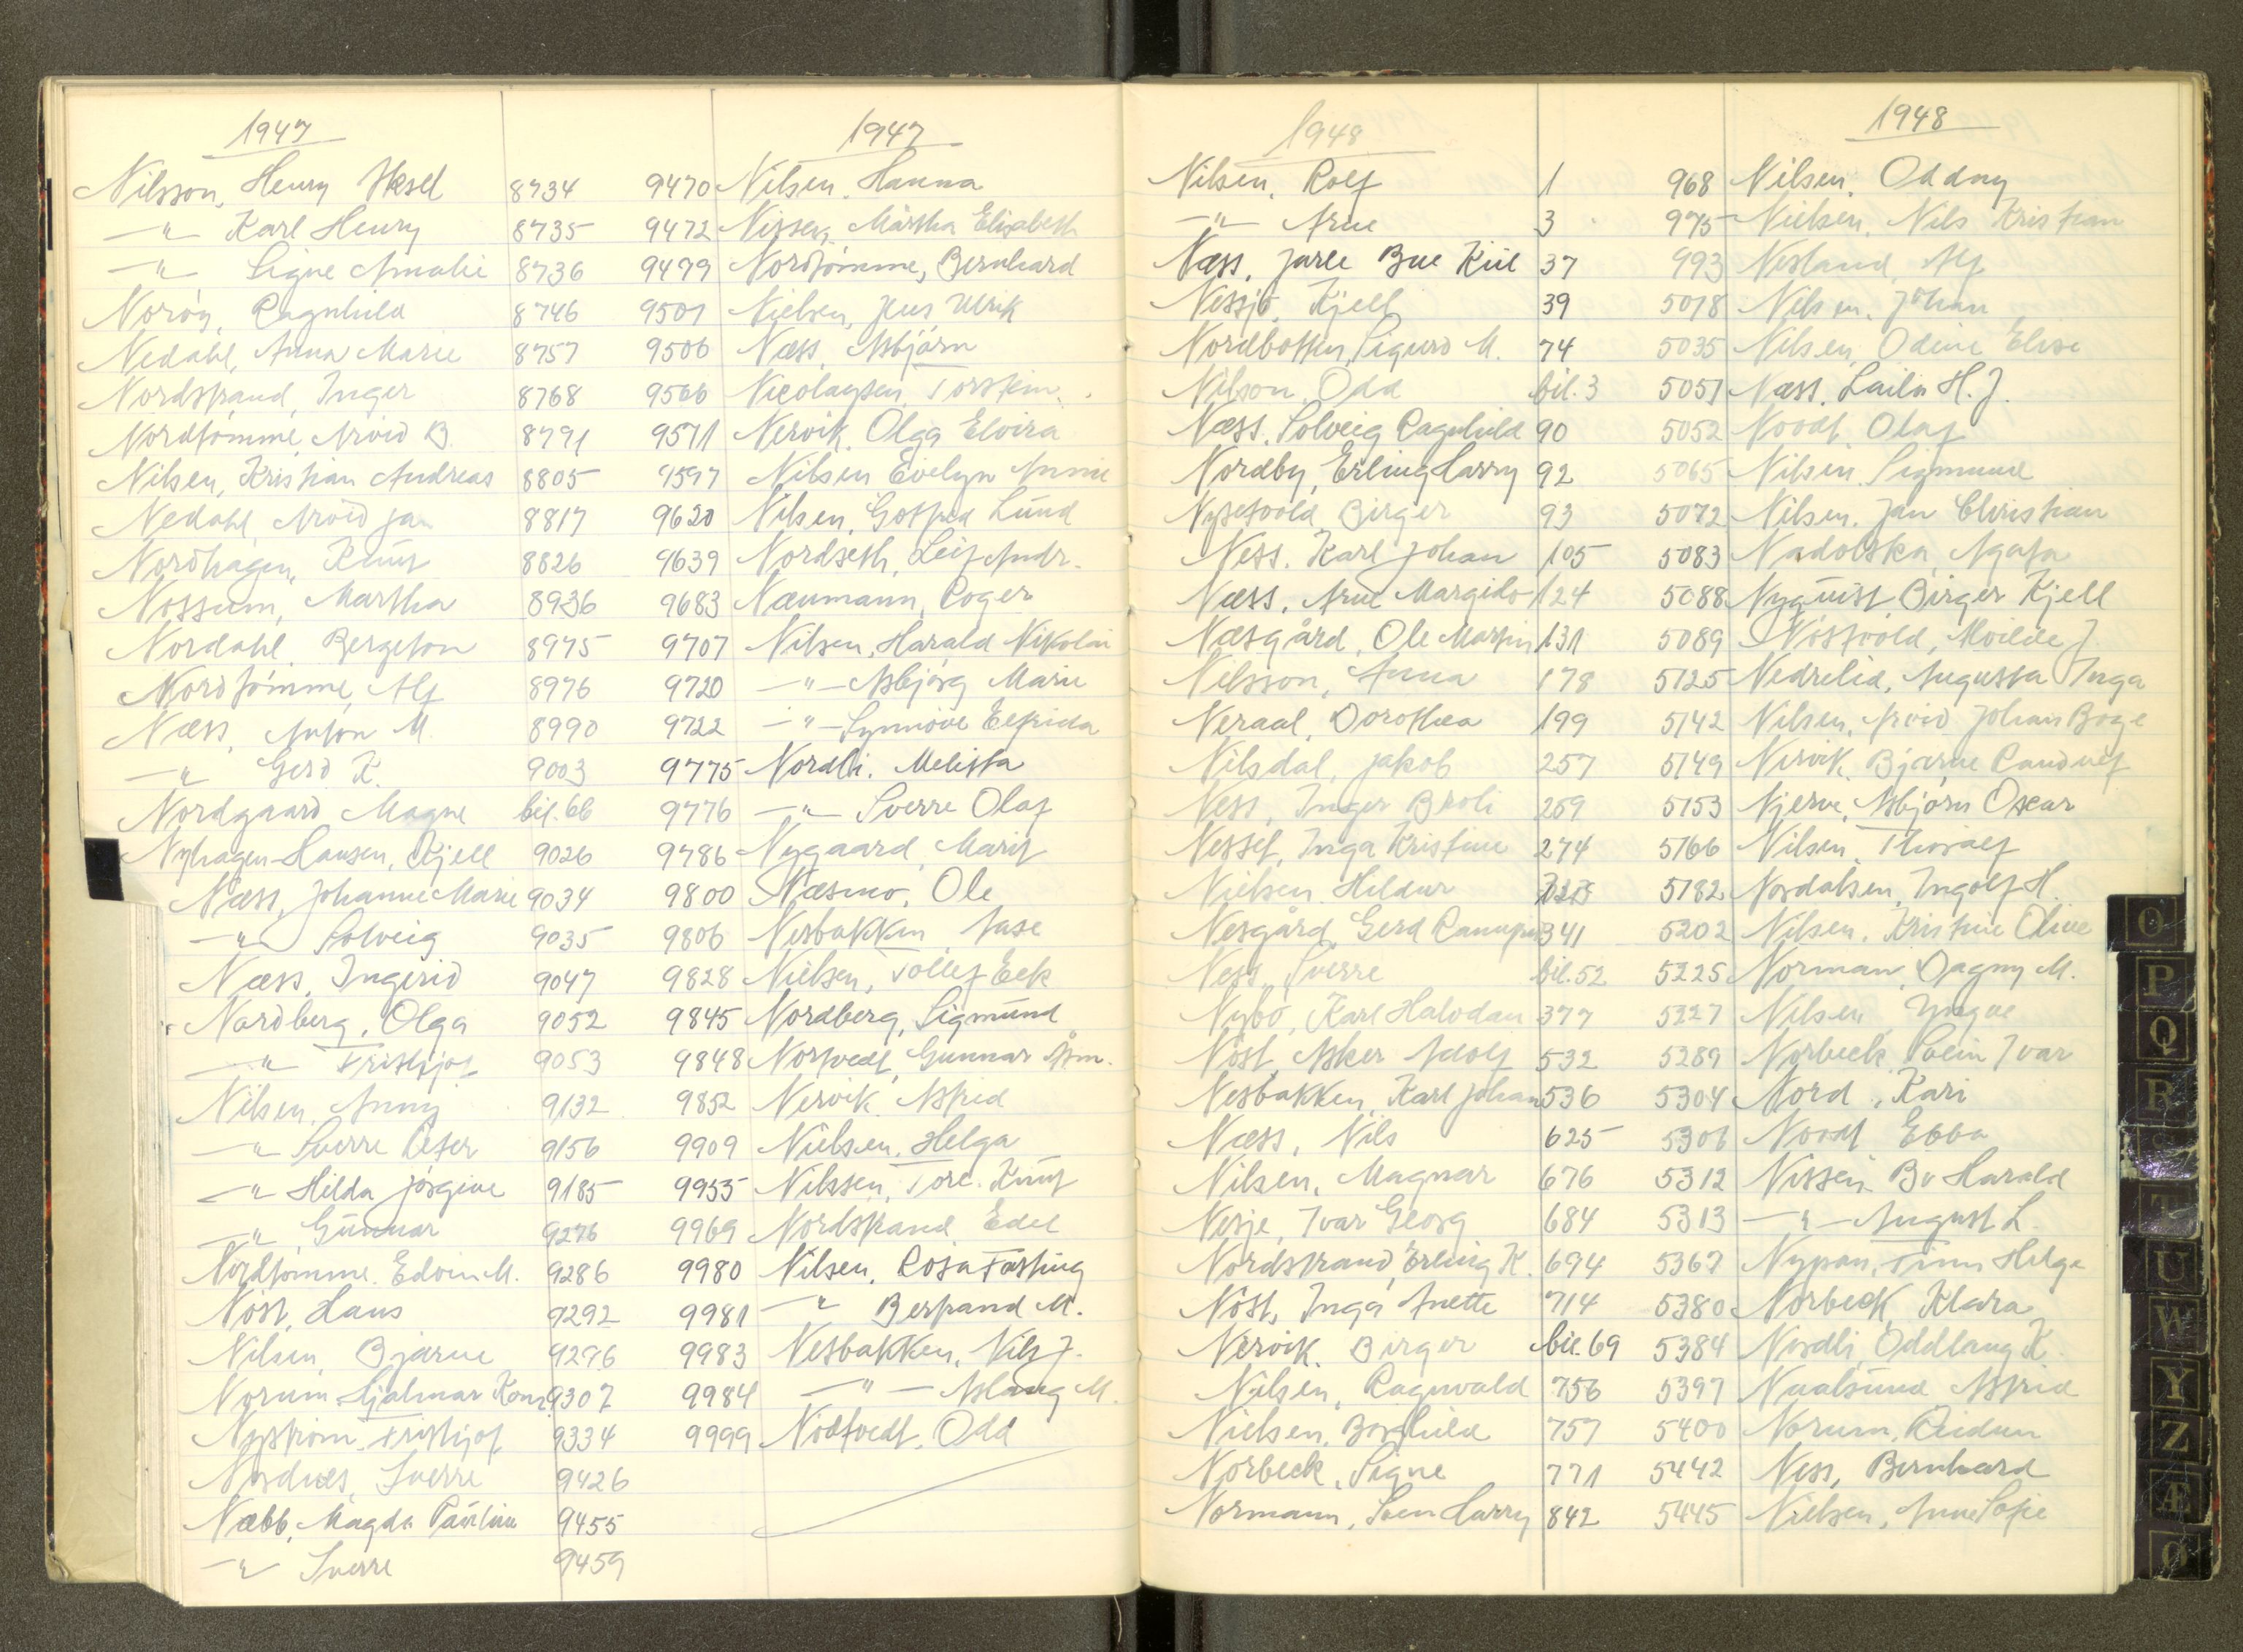 1947
Nilsson, Henry Aksel 8734
—"— Karl Henry 8735
—"— Signe Amalie 8736
Norøy, Ragnhild 8746
Nedahl, Anna Marie 8757
Nordstrand, Inger 8768
Nordtømme, Arvid B. 8791
Nilsen, Kristian Andreas 8805
Nedahl Arvid Jan 8817
Nordhagen, Knut 8826
Nossum, Martha 8936
Nordahl, Bergeton 8975
Nordtømme, Alf 8976
Næss, Anton M. 8990
—"— Gerd K. 9003
Nordgaard Magne bil. 66
Nyhagen-Hansen, Kjell 9026
Næss, Johanne Marie 9034
—"— Solveig 9035
Næss, Ingerid 9047
Nordberg, Olga 9052
—"— Frithjof 9053
Nilsen, Anny 9132
—"— Sverre Peter 9156
—"— Hilda Jørgine 9185
—"— Gunnar 9276
Nordtømme. Edvin M. 9286
Nøst, Hans 9292
Nilsen, Bjarne 9296
Norum Hjalmar Konr. 9307
Nystrøm, Frithjof 9334
Nordnes, Sverre 9426
Næbb, Magda Pauline 9455
—"— Sverre 9459
1947
9470 Nilsen, Hanna
9472 Nissen, Märtha Elisabeth
9479 Nordtømme, Bernhard
9501 Nielsen, Jens Ulrik
9506 Næss, Asbjørn
9566 Nicolaysen, Torstein.
9571 Nervik, Olga Elvira
9597 Nilsen Evelyn Annie
9620 Nilsen, Gotfred Lund
9639 Nordseth, Leif Andr.
9683 Næumann, Roger
9707 Nilsen, Harald Nikolai
9720 —"— Asbjørg Marie
9722 —"— Synnøve Elfrida
9775 Nordli, Melitta
9776 —"— Sverre Olaf
9786 Nygaard, Marit
9800 Næsmo, Ole
9806 Nesbakken, Aase
9828 Nielsen, Tollef Eek
9845 Nordberg, Sigmund
9848 Nortvedt, Gunnar Åsm.
9852 Nervik, Astrid
9909 Nielsen, Helga
9955 Nilssen, Tore. Knut
9969 Nordstrand, Edel
9980 Nilsen, Rosa Fasting
9981 —"— Bertrand M.
9983 Nesbakken, Nils J.
9984 —"— Aslaug M.
9999 Nodtvedt, Odd
1948
Nilsen, Rolf 1
—"— Arne 3
Næss, Jarle Bue Kiil 37
Nessjø, Kjell 39
Nordbotten, Sigurd M. 74
Nilson, Odd bil. 3
Næss, Solveig Ragnhild 90
Nordby, Erling Harry 92
Nysetvold, Birger 93
Ness, Karl Johan 105
Næss, Arne Margido 124
Næsgård, Ole Martin 131
Nilsson, Anna 178
Neraal, Dorothea 199
Nilsdal, Jakob 257
Ness, Inger Broli 259
Nesset, Inga Kristine 274
Nielsen, Hildur
Nesgård, Gerd 341
Ness, Sverre bil. 52
Nybø, Karl Halvdan 377
Nøst, Asker Adolf 532
Nesbakken, Karl Johan 536
Næss, Nils 625
Nilsen, Magnar 676
Nesje, Ivar Georg 684
Nordstrand, Erling K. 694
Nøst, Inga Anette 714
Nervik, Birger bil. 69
Nilsen, Ragnvald 756
Nielsen, Borghild 757
Norbeck, Signe 771
Normann, Sven Harry 842
1948
968 Nilsen, Oddny
975 Nielsen, Nils Kristian
993 Nesland, Alf
5018 Nilsen, Johan
5035 Nilsen, Odine Elise
5051 Næss, Laila H. J.
5052 Noodt, Olaf
5065 Nilsen, Sigmund
5072 Nilsen, Jan Christian
5083 Nadolska, Agata
5088 Nyquist Birger Kjell
5089 Nøstvold, Moilde J.
5125 Nedrelid, Augusta Inga
5142 Nilsen, Arvid Johan Boge
5149 Nervik, Bjarne Randulf
5153 Njerve, Asbjørn Oscar
5166 Nilsen, Thoralf
5182 Nordahsen, Ingolf H.
5202 Nilsen, Kristine Olive
5225 Norman, Dagny M.
5227 Nilsen, Yngve
5289 Norbeck, Svein Ivar
5304 Nord, Kari
5306 Noodt Ebba
5312 Nissen Bv Harald
5313 —"— August L.
5367 Nypan, Finn Helge
5380 Norbeck, Klara
5384 Nordli, Oddlaug K.
5397 Naalsund Astrid
5400 Norum, Reidun
5442 Ness, Bernhard
5445 Nielsen, Anne Sofie
O
P
Q
R
S
T
U
W
Y
Z
Æ
Ø